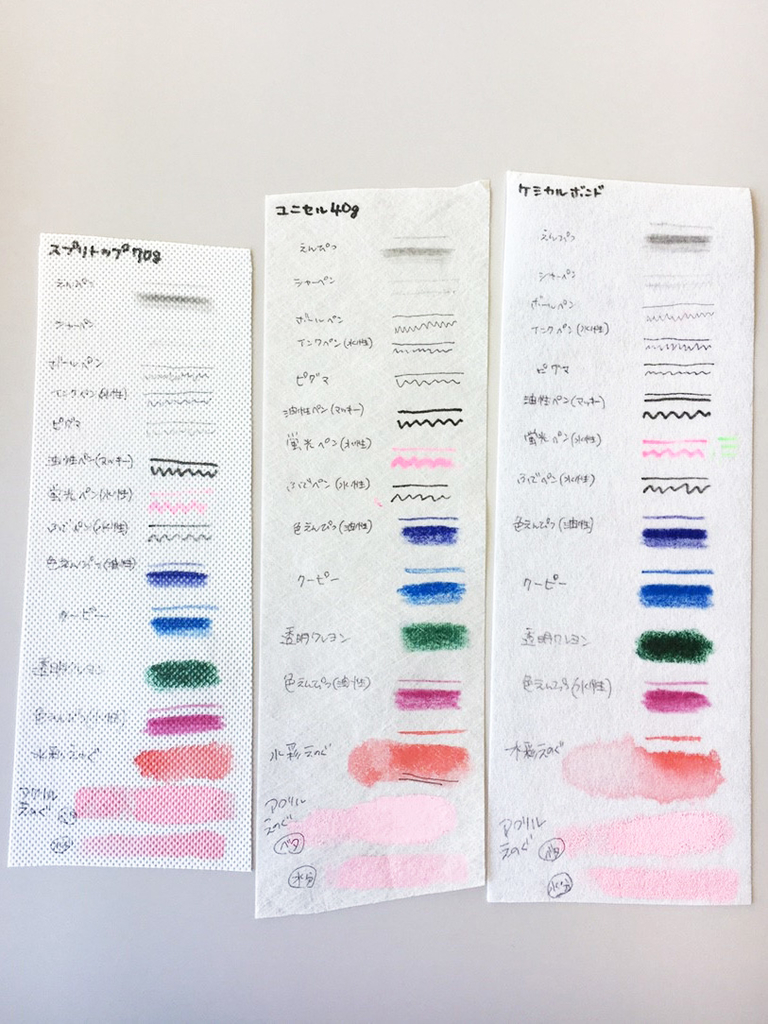 スプリトップ70g
えんぴつ
シャーペン
ボールペン
インクペン(水性)
ピグマ
油性ペン(マッキー)
蛍光ペン(水性)
ふでペン(水性)
色えんぴつ(油性)
クーピー
透明クレヨン
色えんぴつ(水性)
水彩えのぐ
アクリル
えのぐ ベタ
水分
ユニセル40g
えんぴつ
シャーペン
ボールペン
インクペン(水性)
ピグマ
油性ペン(マッキー)
蛍光ペン(水性)
ふでペン(水性)
色えんぴつ(油性)
クーピー
透明クレヨン
色えんぴつ(油性)
水彩えのぐ
アクリル
えのぐ
ベタ
水分
ケミカルボンド
えんぴつ
シャーペン
ボールペン
インクペン(水性)
ピグマ
油性ペン(マッキー)
蛍光ペン(水性)
ふでペン(水性)
色えんぴつ(油性)
クーピー
透明クレヨン
色えんぴつ(水性)
水彩えのぐ
アクリル
えのぐ ベタ
水分